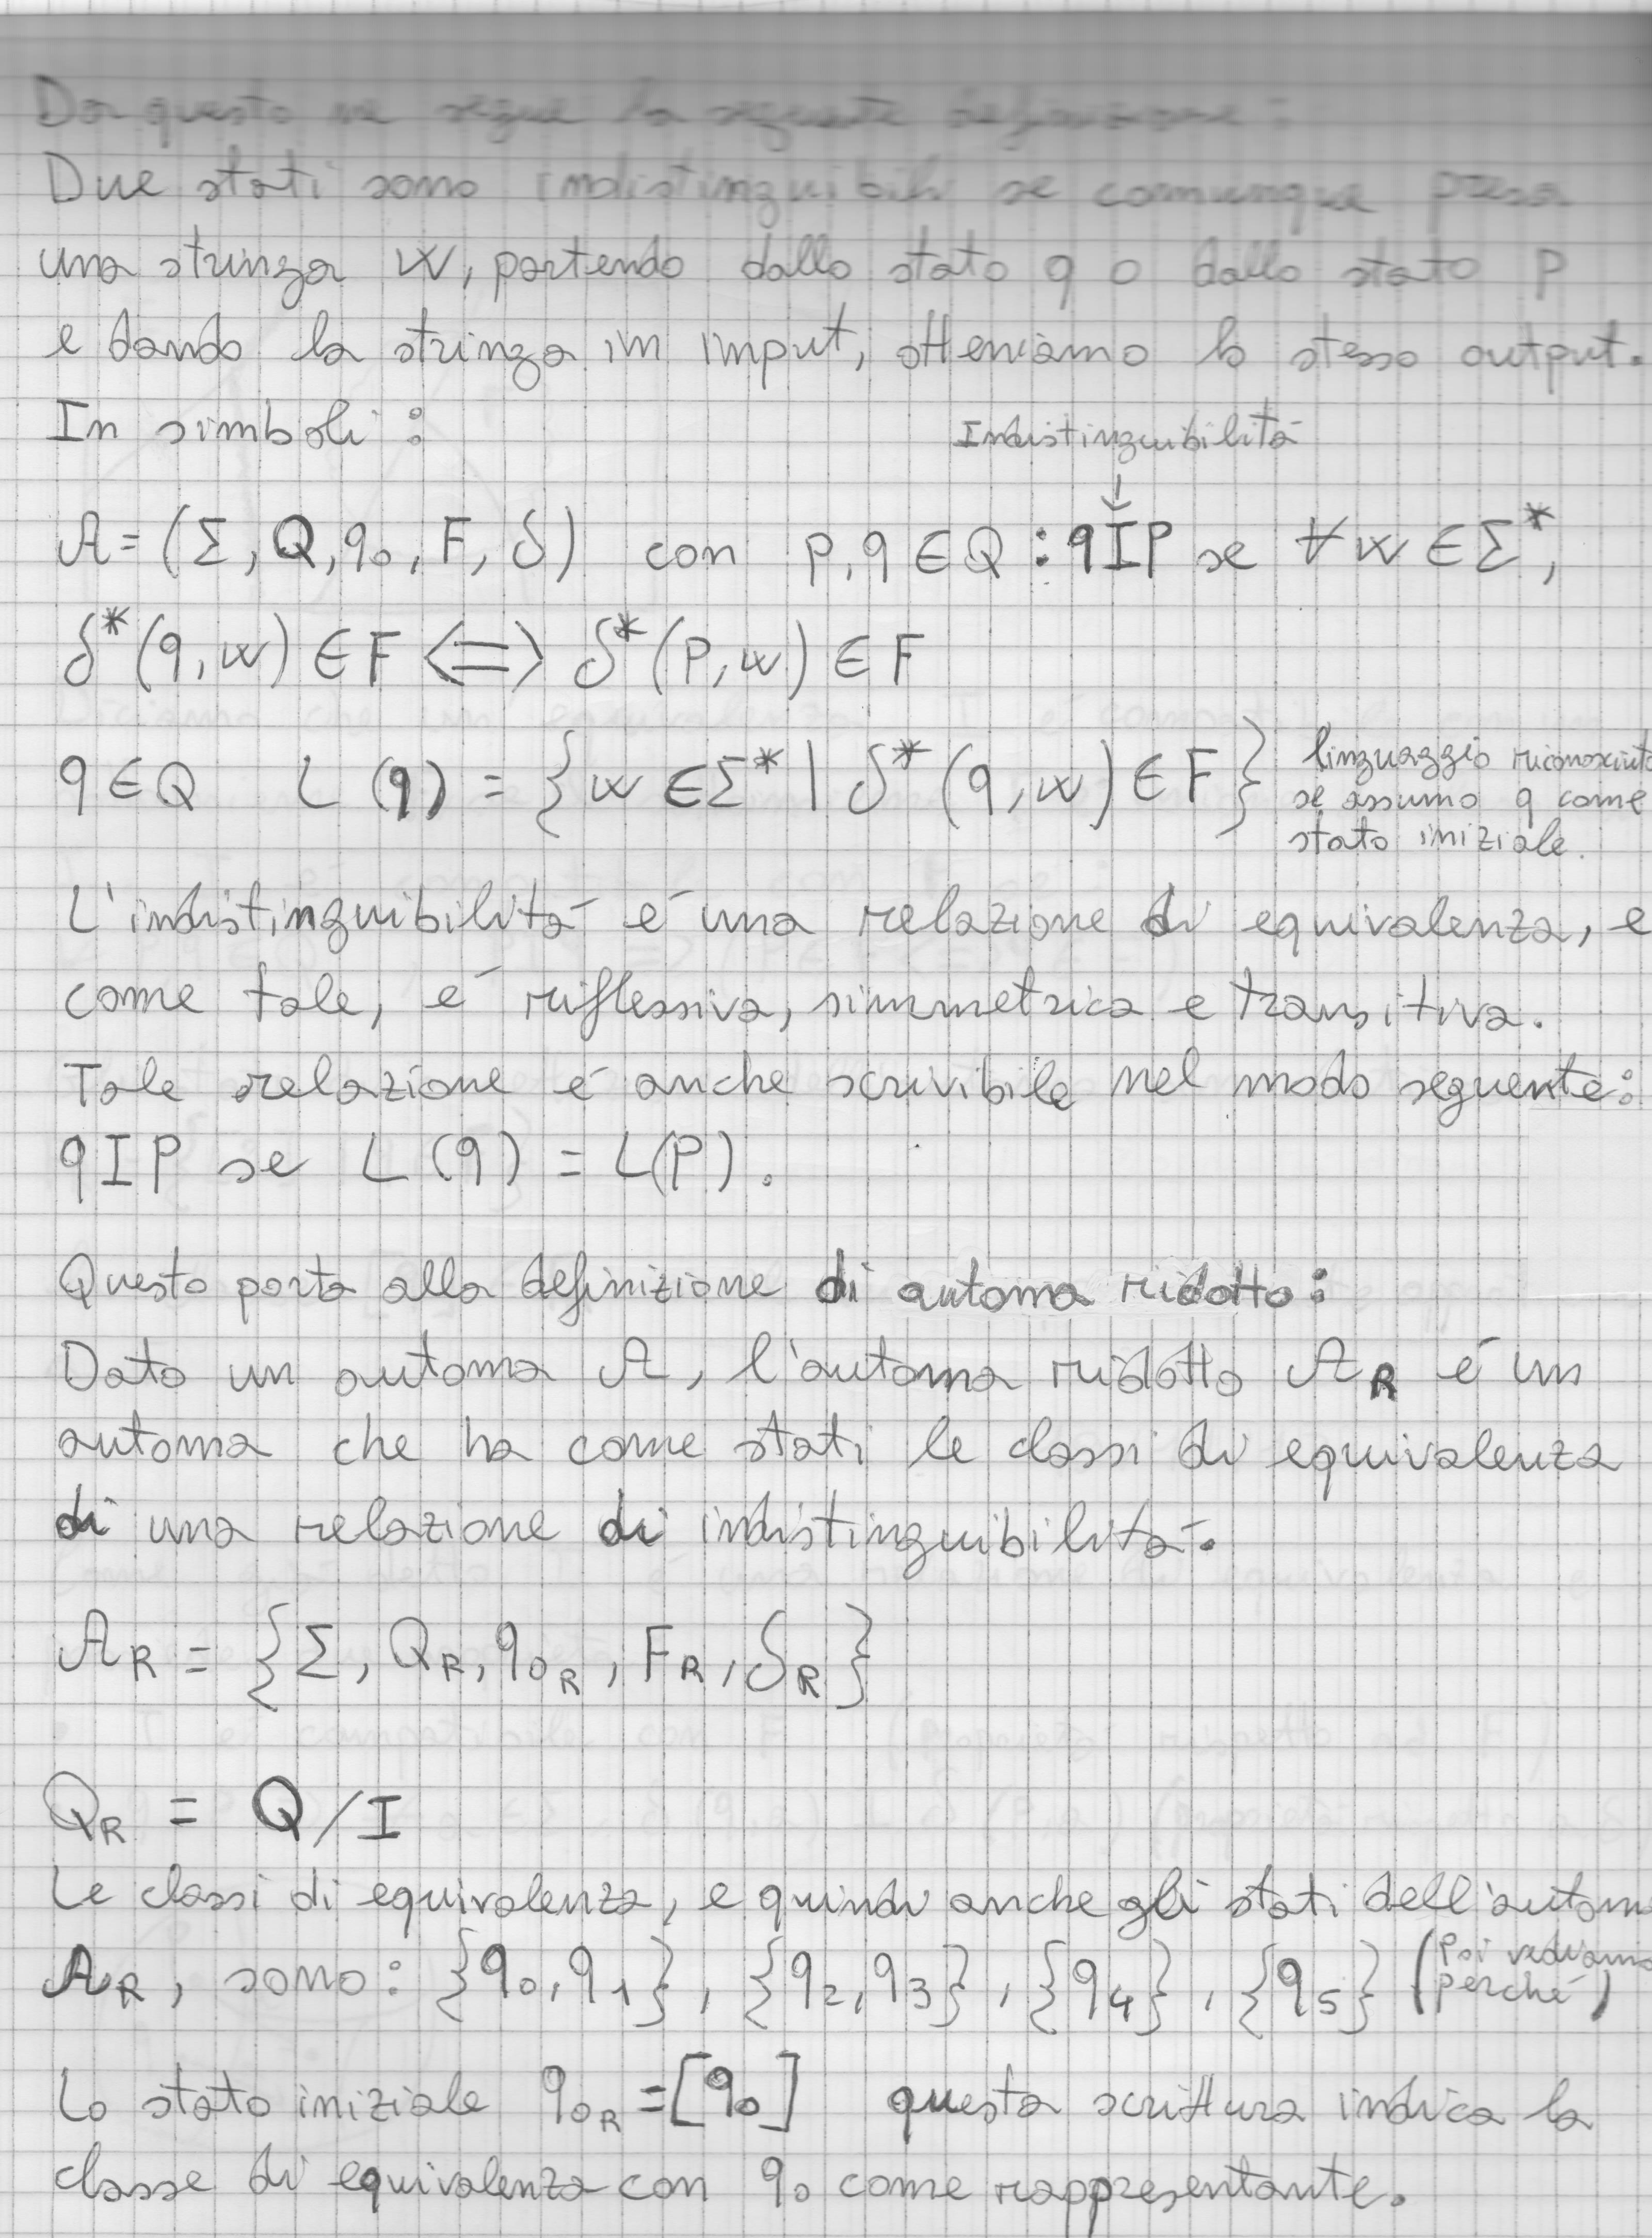 Da questo ne segue la seguente definizione:
Due stati sono indistinguibili se comunque presa
una stringa w, partendo dallo stato q o dallo stato p
e dando la stringa in input, otteniamo lo stesso output.
In simboli:
Indistinguibilità
↓
A = (Σ, Q, q₀, F, δ) con p, q ∈ Q : q I p se ∀ w ∈ Σ*,
δ*(q, w) ∈ F <=> δ*(p, w) ∈ F
q ∈ Q L(q) = {w ∈ Σ* | δ*(q, w) ∈ F} linguaggio riconosciuto
se assumo q come
stato iniziale.
L'indistinguibilità é una relazione di equivalenza, e
come tale, é riflessiva, simmetrica e transitiva.
Tale relazione é anche scrivibile nel modo seguente:
q I p se L(q) = L(p).
Questo porta alla definizione di automa ridotto:
Dato un automa A, l'automa ridotto A_R é un
automa che ha come stati le classi di equivalenza
di una relazione di indistinguibilità.
A_R = {Σ, Q_R, q₀_R, F_R, δ_R}
Q_R = Q/I
Le classi di equivalenza, e quindi anche gli stati dell'automa
A_R, sono: {q₀, q₁}, {q₂, q₃}, {q₄}, {q₅} (Poi vediamo
perché)
Lo stato iniziale q₀_R = [q₀] questa scrittura indica la
classe di equivalenza con q₀ come rappresentante.